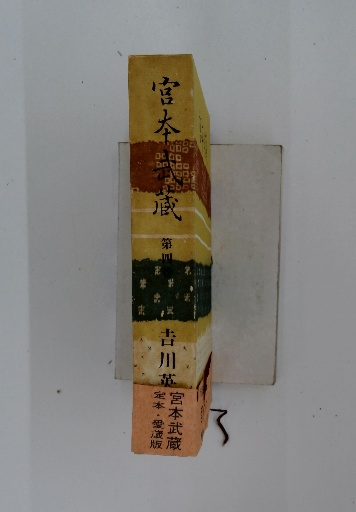 宮本武蔵
第四
吉川英
宮本武蔵
定本・愛蔵版